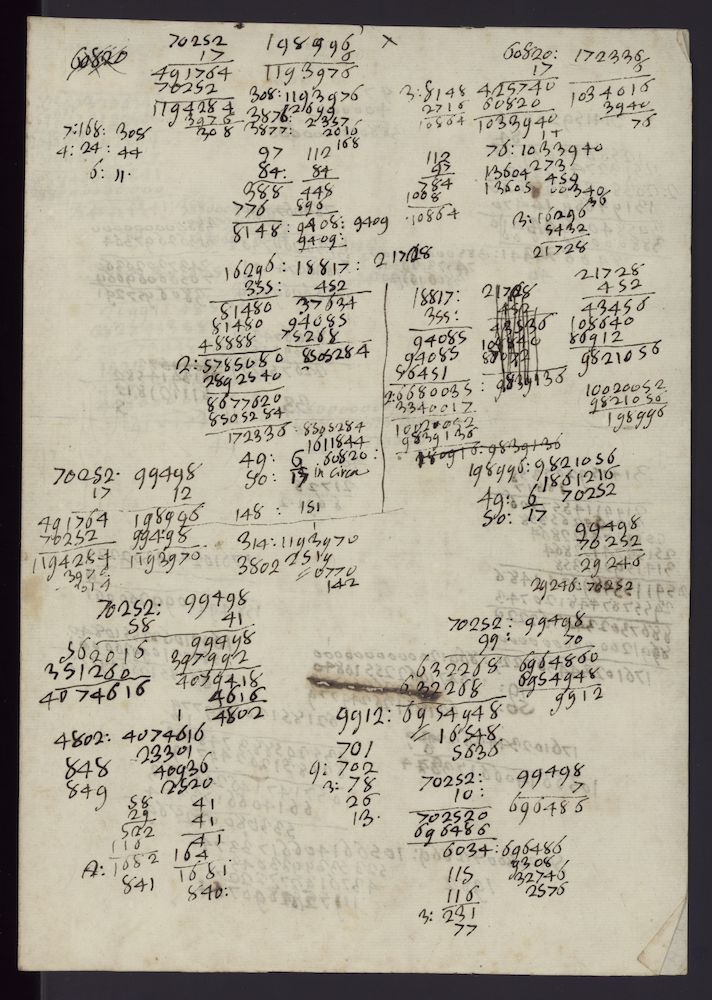 60820
70252
17
491764
70252
1194284
3976
308
198996 ×
6
1193976
308: 1193976
3876:
3877: 2357
2016
168
7:168: 308
4: 24: 44
6: 11.
97 112
84: 84
388 448
776 896
8148: 9408: 9409
9409:
60820: 172336
17 6
425740 1034016
60820 3940
1033940 76
3: 8148
2716
10864
76: 1033940
13604 273
13605 459
340
36
112
97
784
1008
10864
3: 16296
5432
21728
16296: 18817: 21728
355: 452
81480 37634
81480 94085
48888 75268
2: 5785080 8505284
2892540
8677620
8505284
172336
8505284
1011844
49: 6 60820:
50: 17 in circa
18817: 21728
355:
94085
94085
56451
2: 6680035: 9839136
3340017
10020052
9839136
180916: 9839136
21728
452
43456
108640
86912
9821056
10020052
9821056
198996
198996: 9821056
1861216
49: 6 70252
50: 17
70252 99498
17 12
491764 198996
70252 99498
1194284 1193976
148: 151
314: 1193970
3802 2519
0770
142
99498
70252
29246
29246: 70252
70252: 99498
58 41
562016 99498
351260 397992
4074616 4079418
4616
4802
4802: 4074616
23301
848 40936
849 2520
58 41
29 41
522 41
116 164
A: 1682 1681
841 840:
70252: 99498
99: 70
632268 6964860
632268 6954948
9912: 6954948 9912
16548
5636
701
9: 702
3: 78
26
13.
70252: 99498
10: 7
702520 696486
696486
6034: 696486
9308
32746
2576
115
116
3: 231
77